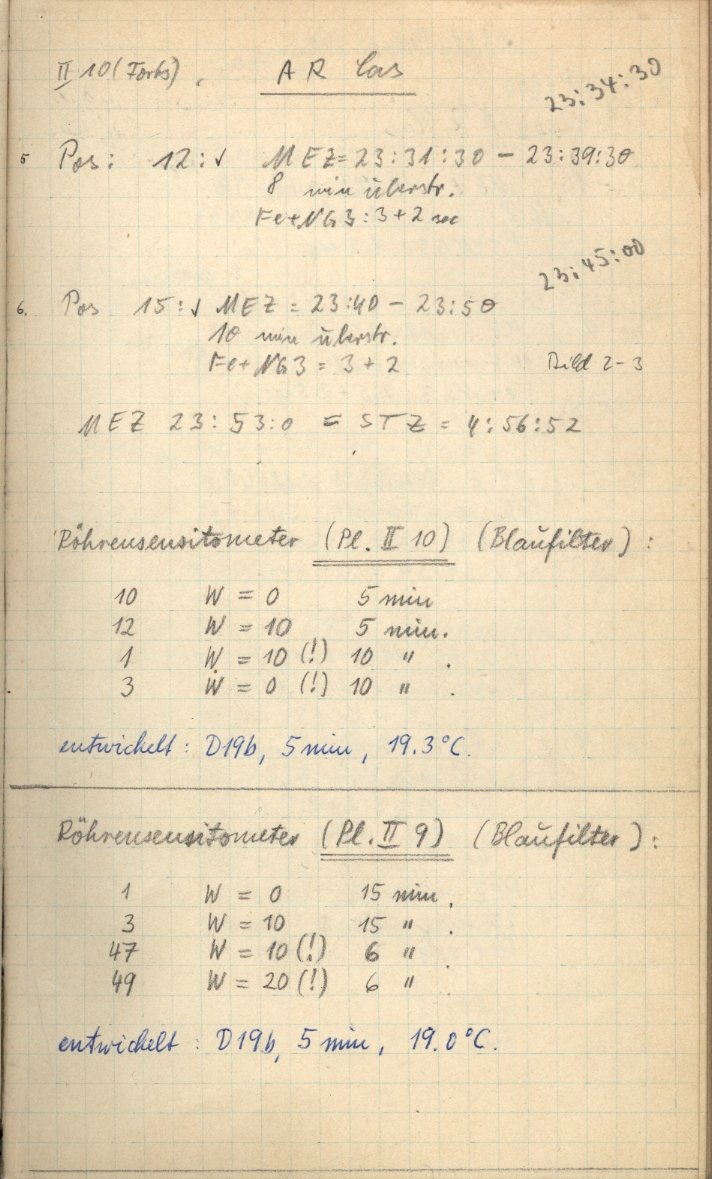 II 10 (Forts). AR Cas
23:34:30
5 Pos: 12:√ MEZ=23:31:30 - 23:39:30
8 min überstr.
Fe+NG3:3+2 sec
23:45:00
6. Pos 15:√ MEZ = 23:40 - 23:50
10 min überstr.
Fe+NG3 = 3+2 Bild 2-3
MEZ 23:53:0 = STZ = 4:56:52
Röhrensensitometer (Pl. II 10) (Blaufilter):
10 W = 0 5 min
12 W = 10 5 min.
1 W = 10 (!) 10 " .
3 W = 0 (!) 10 " .
entwickelt: D19b, 5 min, 19.3°C.
Röhrensensitometer (Pl. II 9) (Blaufilter):
1 W = 0 15 min.
3 W = 10 15 " .
47 W = 10 (!) 6 "
49 W = 20 (!) 6 " .
entwickelt: D19b, 5 min, 19.0°C.